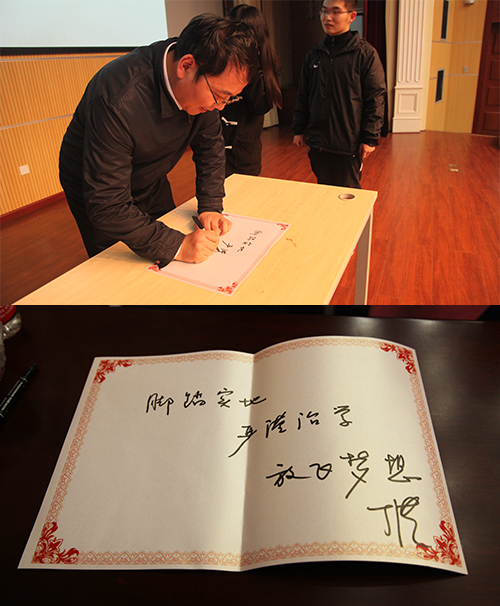 脚踏实地
严谨治学
放飞梦想